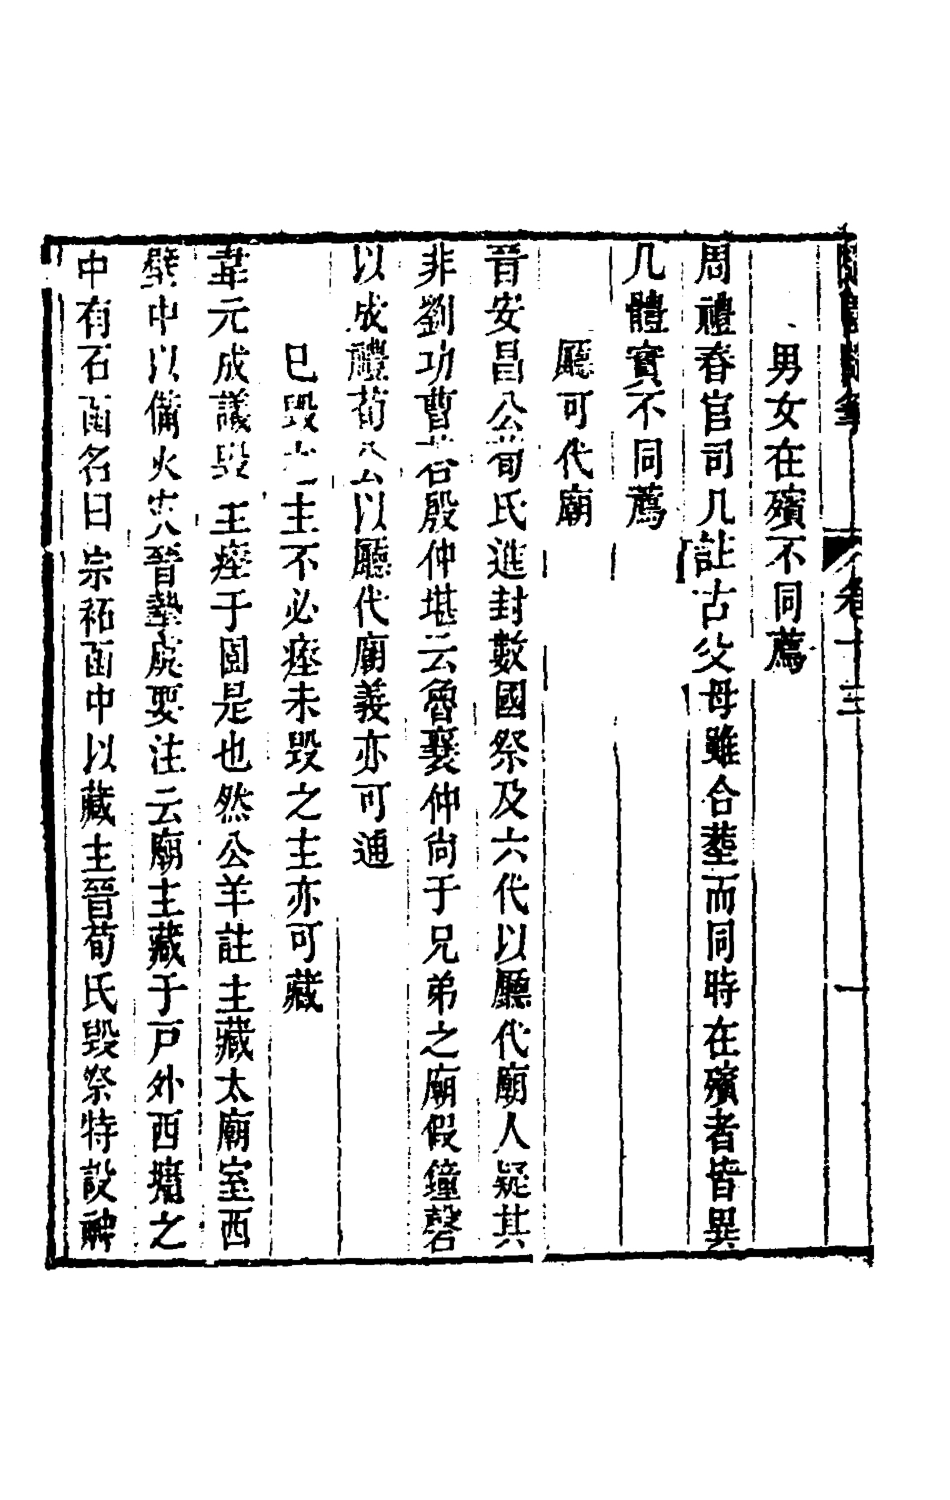 卷十三
一
男女在殯不同薦
周禮春官司几註古父母雖合塟而同時在殯者皆異
几體實不同薦
廳可代廟
晉安昌公荀氏進封數國祭及六代以廳代廟人疑其
非劉功曹荅殷仲堪云魯襄仲尚于兄弟之廟假鐘磬
以成禮荀公以廳代廟義亦可通
已毀之主不必瘞未毀之主亦可藏
韋元成議毀主瘞于園是也然公羊註主藏太廟室西
壁中以備火災晉摯虞要注云廟主藏于戸外西墉之
中有石函名曰宗祏函中以藏主晉荀氏毀祭特設神